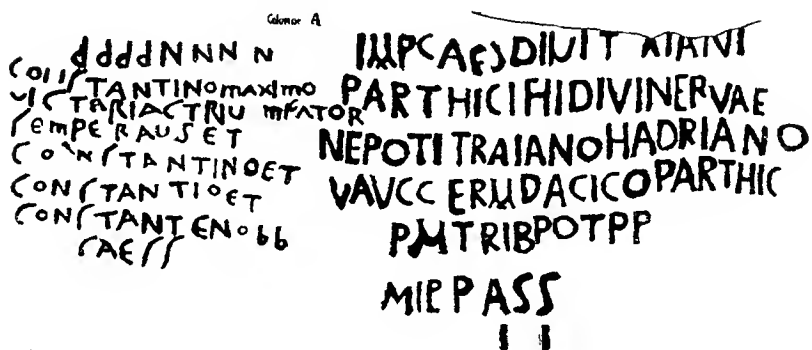 Column A
ddddNNNN
CONSTANTINOmaximo
VICTARIACTRIUmFATOR
SEMPERAUSET
CONSTANTINOET
CONSTANTIOET
CONSTANTENObb
CAESS
IMPCAESDIUIT RAIANI
PARTHICIFIDIVINERVAE
NEPOTITRAIANOHADRIANO
VAVCC ERMDACICOPARTHIC
PMTRIBPOTPP
MIPPASS
II